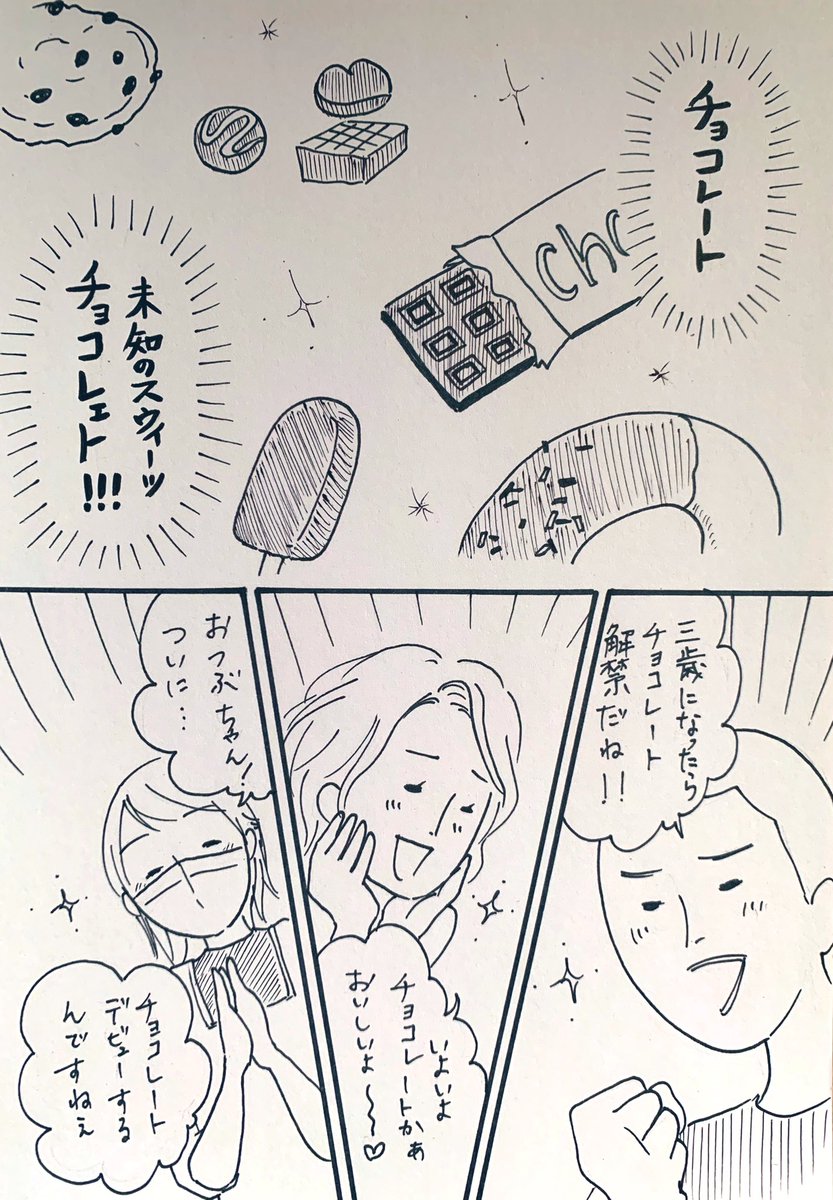 チョコレート
Cho
未知のスウィーツ
チョコレェト!!!
三歳になったら
チョコレート
解禁だね!!
いよいよ
チョコレートかぁ
おいしいよ〜〜♡
おつぶちゃん!
ついに…
チョコレート
デビューする
んですねぇ